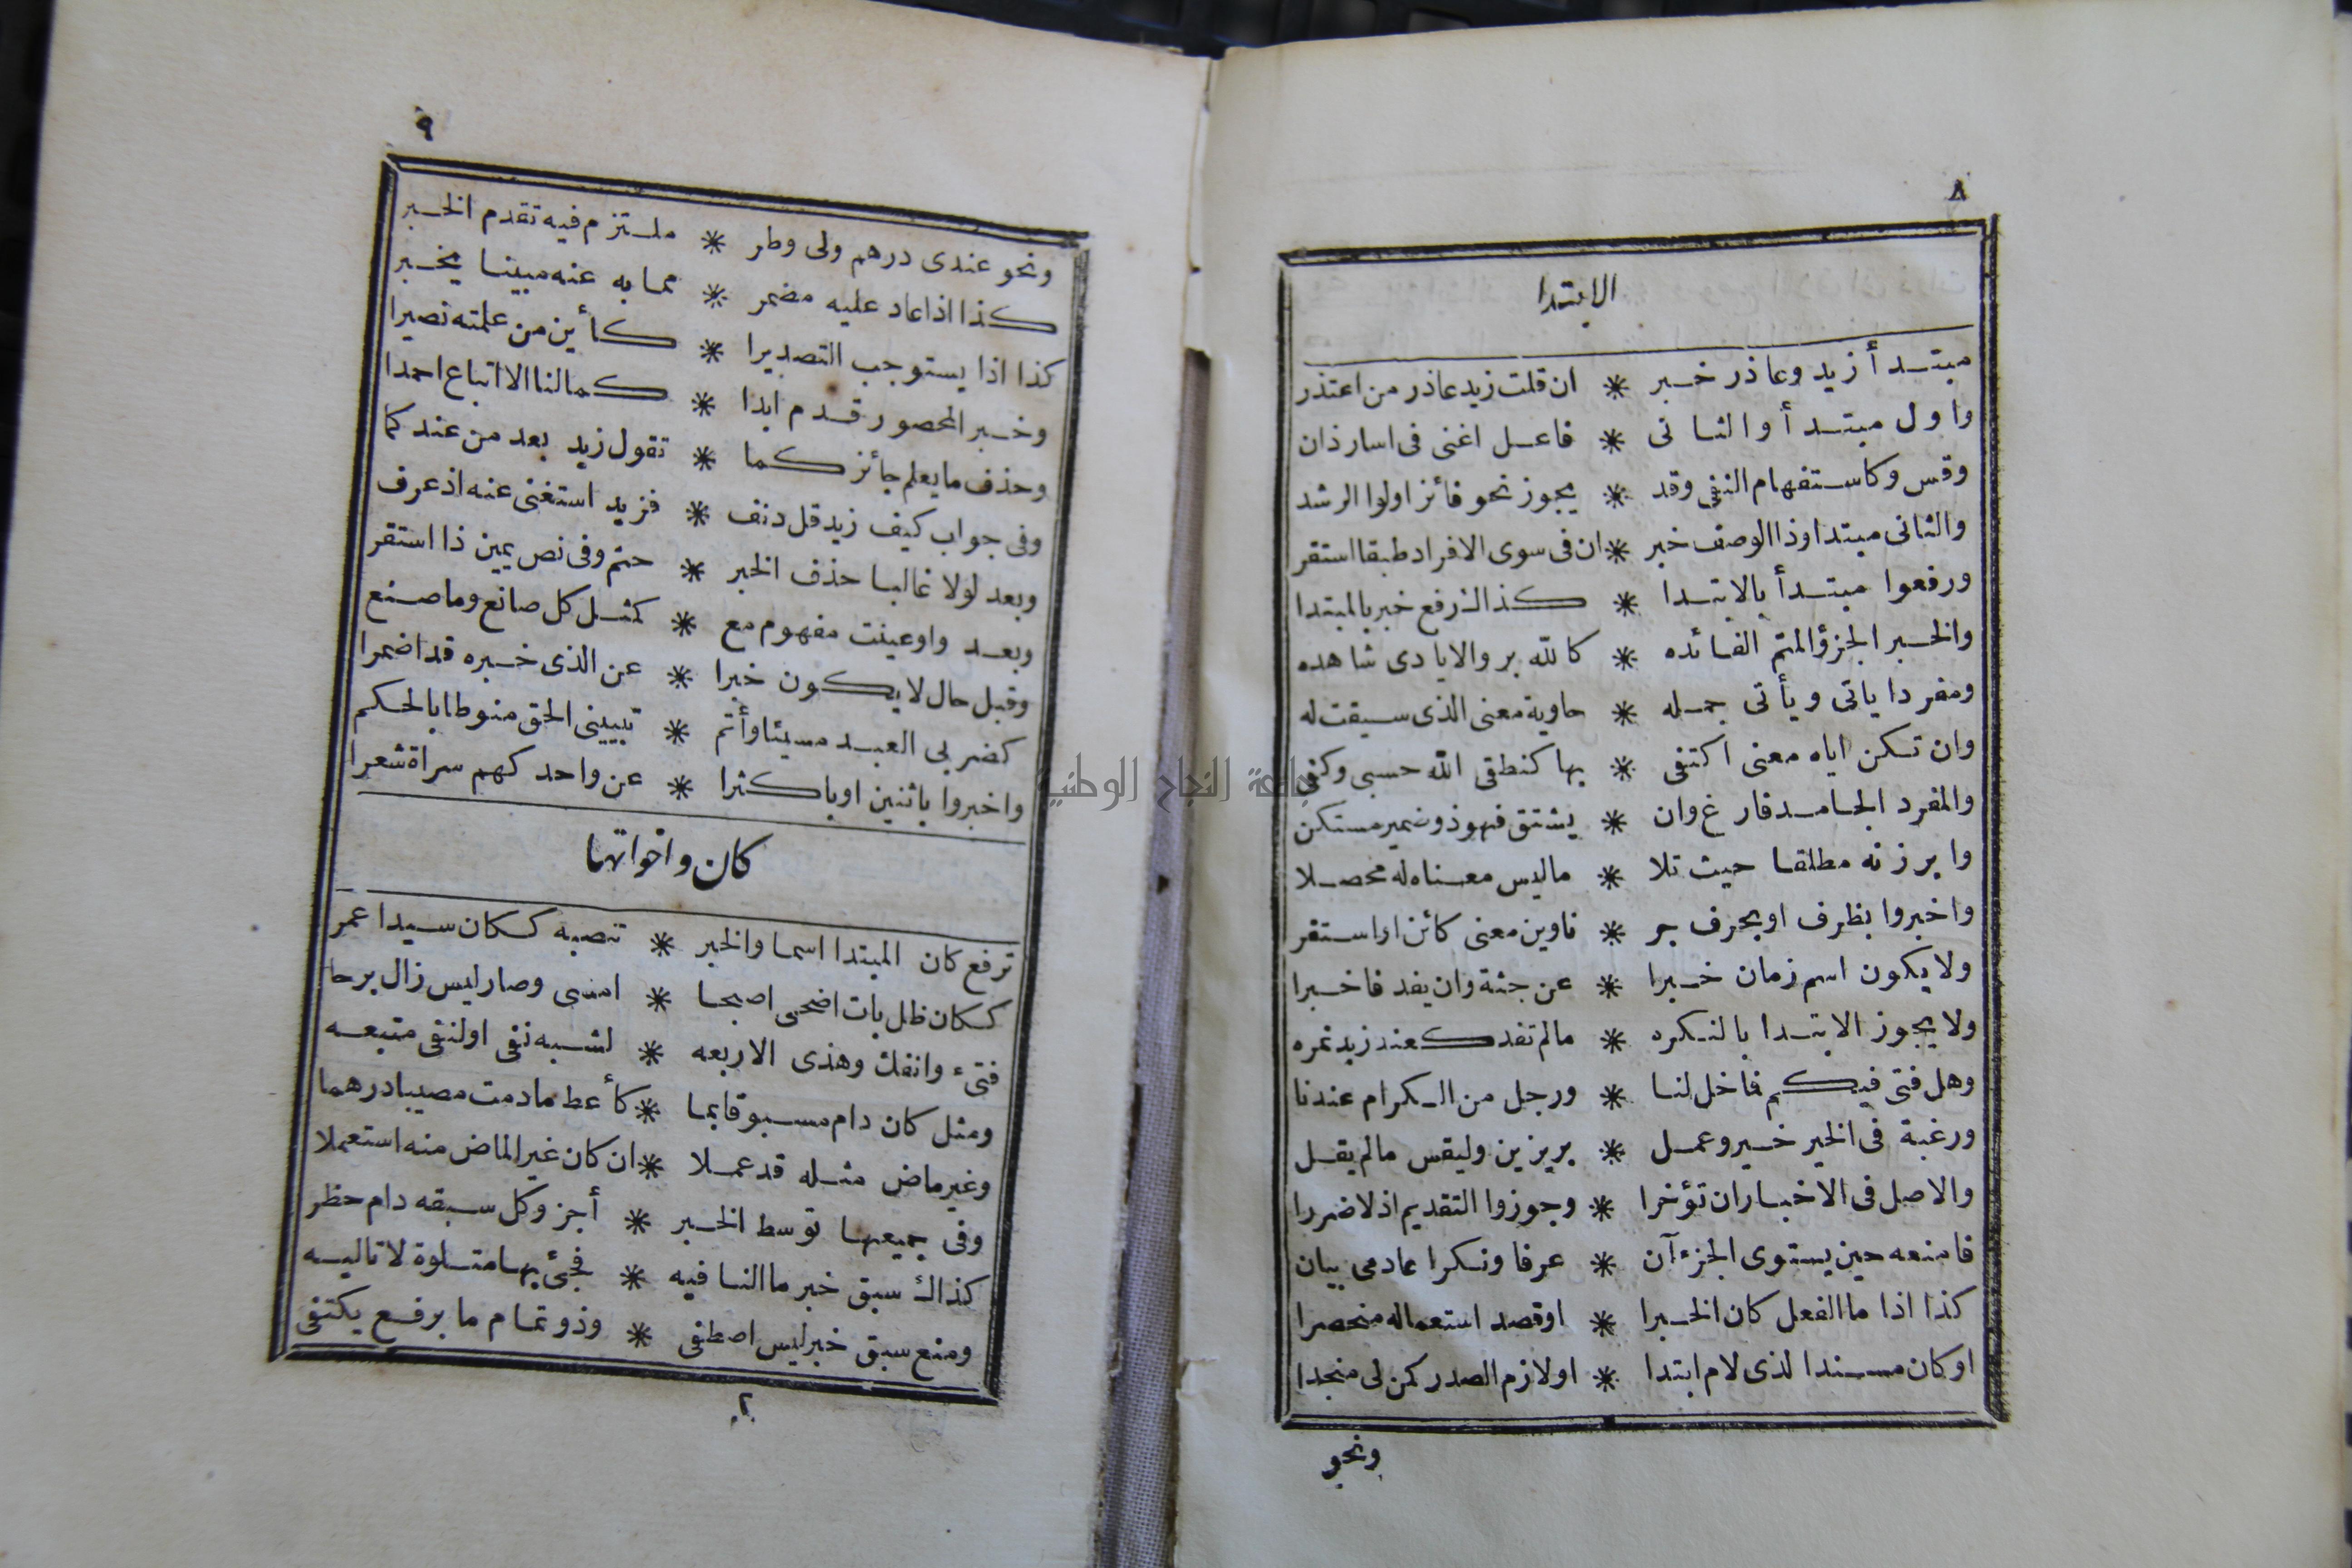 ٨
الابتدا
مبتدأ زيد وعاذر خبر * ان قلت زيد عاذر من اعتذر
واول مبتدأ والثانى * فاعل اغنى فى اسار ذان
وقس وكاستفهام النفى وقد * يجوز نحو فائز اولوا الرشد
والثانى مبتدا وذا الوصف خبر * ان فى سوى الافراد طبقا استقر
ورفعوا مبتدأ بالابتدا * كذاك رفع خبر بالمبتدا
والخبر الجزؤ المتم الفائده * كالله بر والايادى شاهده
ومفردا ياتى ويأتى جمله * حاوية معنى الذى سيقت له
وان تكن اياه معنى اكتفى * بها كنطقى الله حسبى وكفى
والمفرد الجامد فارغ وان * يشتق فهو ذو ضمير مستكن
وابرزنه مطلقا حيث تلا * ما ليس معناه له محصلا
واخبروا بظرف او بحرف جر * ناوين معنى كائن او استقر
ولا يكون اسم زمان خبرا * عن جثة وان يفد فاخبرا
ولا يجوز الابتدا بالنكره * مالم تفد كعند زيد نمره
وهل فتى فيكم فماخل لنا * ورجل من الكرام عندنا
ورغبة فى الخير خير وعمل * بر يزين وليقس مالم يقل
والاصل فى الاخبار ان تؤخرا * وجوزوا التقديم اذ لا ضررا
فامنعه حين يستوى الجزءآن * عرفا ونكرا عادمى بيان
كذا اذا ما الفعل كان الخبرا * او قصد استعماله منحصرا
او كان مسندا لذى لام ابتدا * او لازم الصدر كمن لى منجدا
ونحو
٩
ونحو عندى درهم ولى وطر * ملتزم فيه تقدم الخبر
كذا اذا عاد عليه مضمر * مما به عنه مبينا يخبر
كذا اذا يستوجب التصديرا * كأين من علمته نصيرا
وخبر المحصور قدم ابدا * كمالنا الا اتباع احمدا
وحذف ما يعلم جائز كما * تقول زيد بعد من عند كما
وفى جواب كيف زيد قل دنف * فزيد استغنى عنه اذ عرف
وبعد لولا غالبا حذف الخبر * حتم وفى نص يمين ذا استقر
وبعد واو عينت مفهوم مع * كمثل كل صانع وما صنع
وقبل حال لا يكون خبرا * عن الذى خبره قد اضمرا
كضربى العبد مسيئا وأتم * تبيينى الحق منوطا بالحكم
واخبروا باثنين او باكثرا * عن واحد كهم سراة شعرا
كان واخواتها
ترفع كان المبتدا اسما والخبر * تنصبه ككان سيدا عمر
ككان ظل بات اضحى اصبحا * امسى وصار ليس زال برحا
فتىء وانفك وهذى الاربعه * لشبه نفى او لنفى متبعه
ومثل كان دام مسبوقا بما * كأعط مادمت مصيبا درهما
وغير ماض مثله قد عملا * ان كان غير الماض منه استعملا
وفى جميعها توسط الخبر * أجز وكل سبقه دام حظر
كذاك سبق خبر ما النافيه * فجئ بها متلوة لا تاليه
ومنع سبق خبر ليس اصطفى * وذو تمام ما برفع يكتفى
٢
جامعة النجاح الوطنية